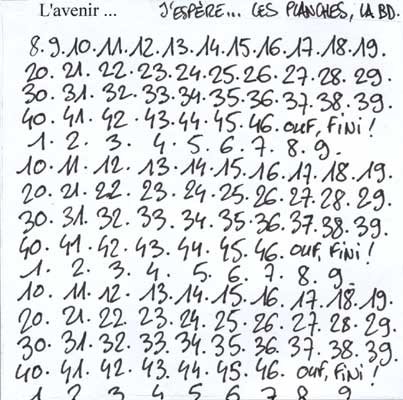 L'avenir ... J'ESPÈRE... LES PLANCHES, LA BD.
8.9.10.11.12.13.14.15.16.17.18.19.
20.21.22.23.24.25.26.27.28.29.
30.31.32.33.34.35.36.37.38.39.
40.41.42.43.44.45.46. ouf, fini !
1. 2. 3. 4. 5. 6. 7. 8. 9.
10.11.12.13.14.15.16.17.18.19.
20.21.22.23.24.25.26.27.28.29.
30.31.32.33.34.35.36.37.38.39.
40.41.42.43.44.45.46. ouf, fini !
1. 2. 3. 4. 5. 6. 7. 8. 9.
10.11.12.13.14.15.16.17.18.19.
20.21.22.23.24.25.26.27.28.29.
30.31.32.33.34.35.36.37.38.39.
40.41.42.43.44.45.46. ouf, fini !
1 2 3 4 5 6 7 8 9